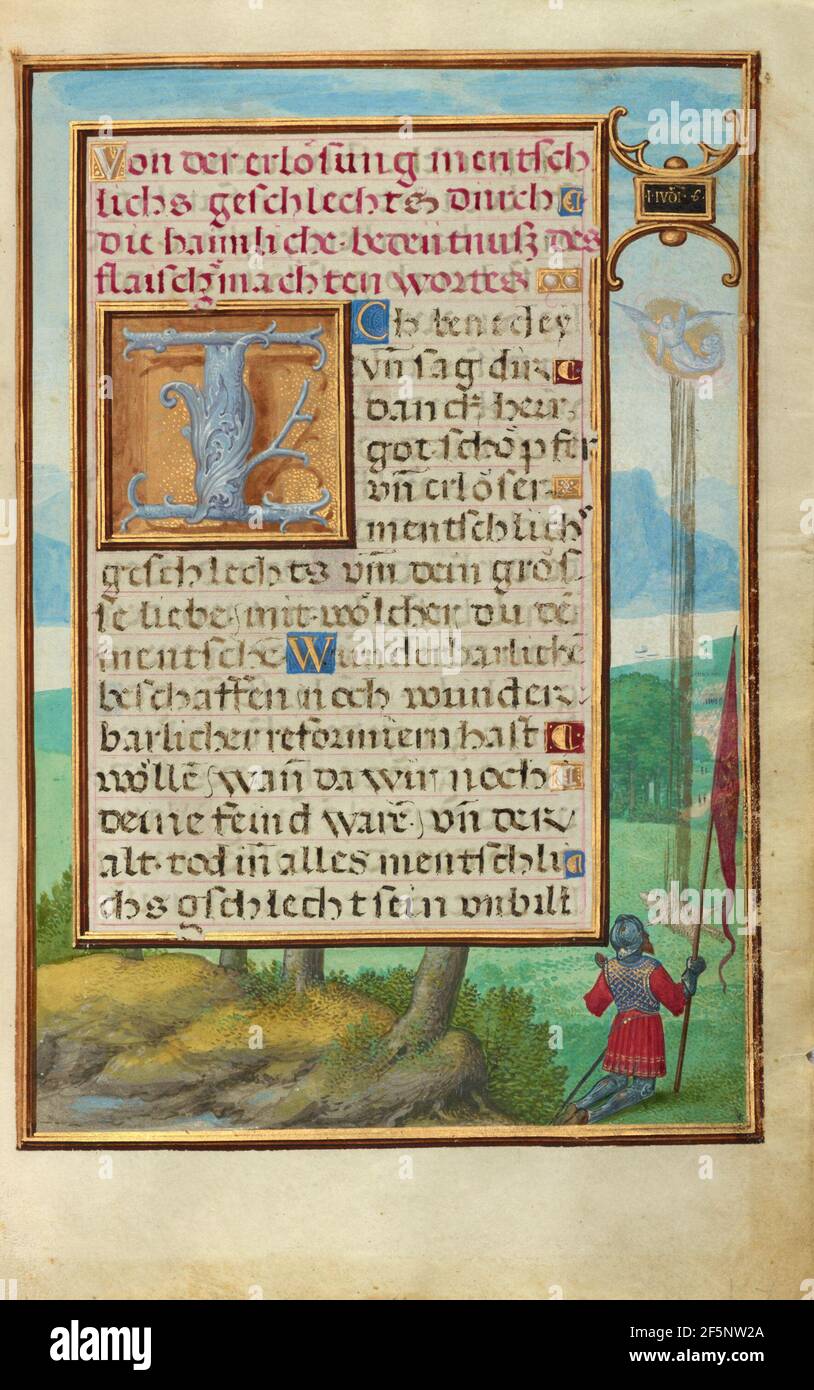 Von der erlösung mentsch
lichs geschlechts durch
die haimliche bedeutnuß des
flaischgmachten wortes
·I·IVDI·6·
ICh benedey
vn̄ sag dir
danck herr
got schöpfer
vn̄ erlöser
mentschlichs
geschlechts vm̄ dein grös
se liebe/ mit wölcher du dē
mentschē Wunderbarlichē
beschaffen noch wunder
barlicher reformiern hast
wöllē/ wan̄ da wir noch
deine feind warē/ vn̄ der
alt tod in̄ alles mentschli
chs gschlecht sein vnbill
alamy
Image ID: 2F5NW2A
www.alamy.com